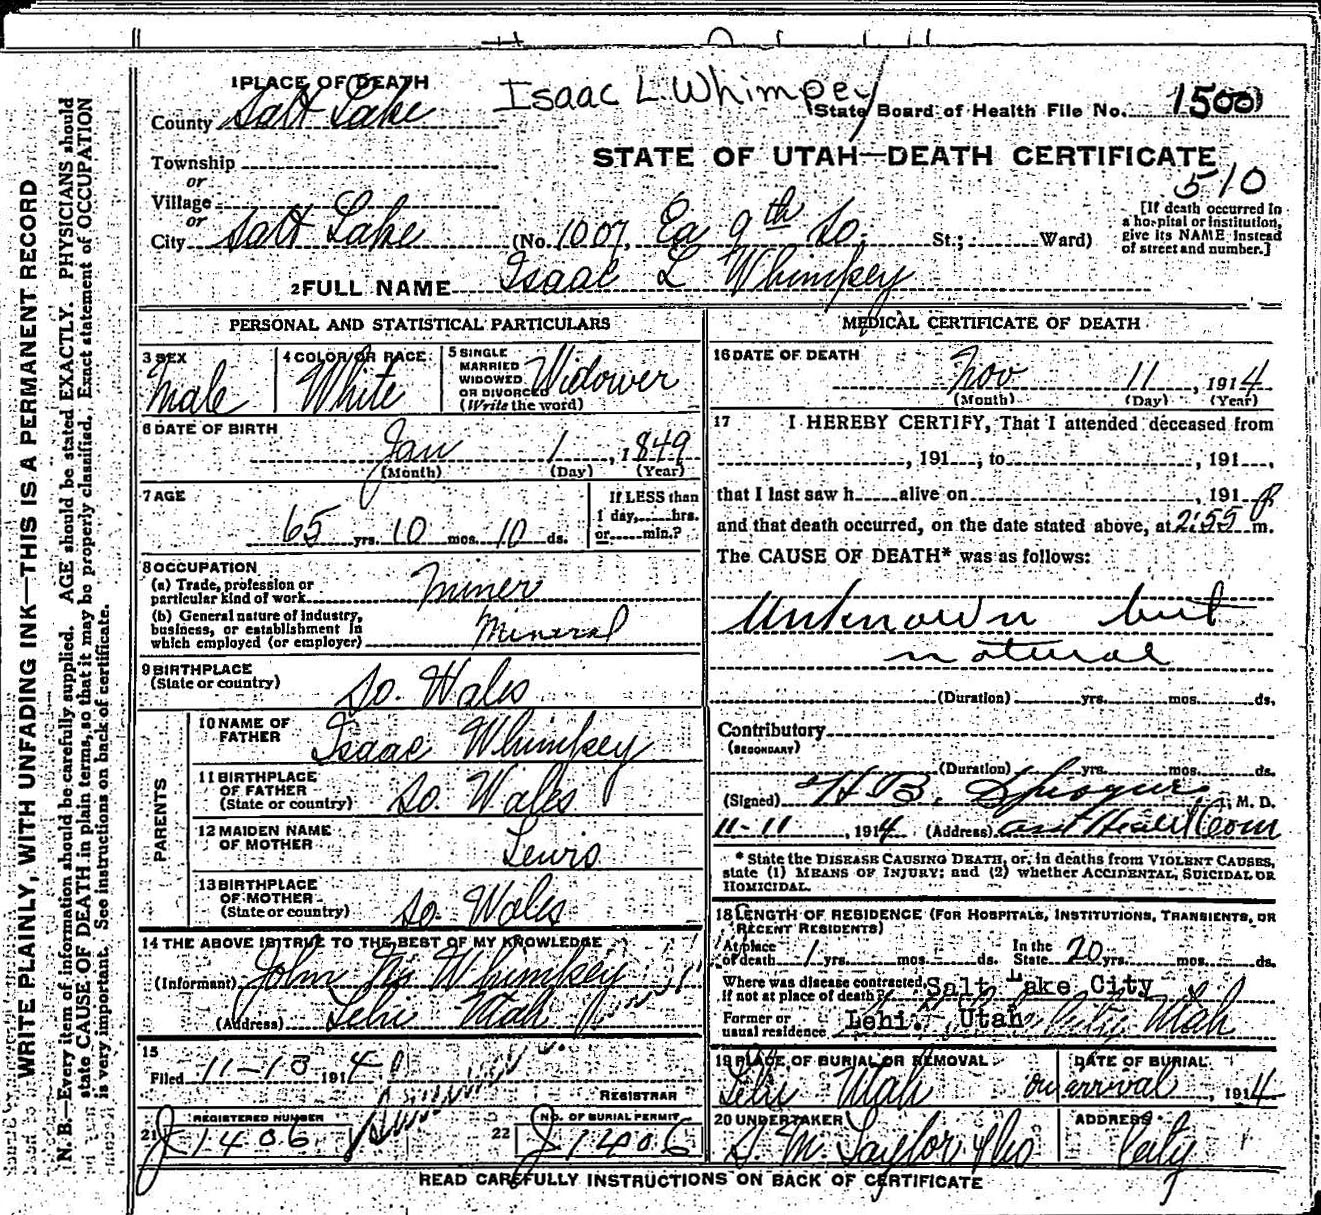 Isaac L. Whimpey
1 PLACE OF DEATH
County Salt Lake
State Board of Health File No. 1500
Township
or
Village
or
City Salt Lake
STATE OF UTAH—DEATH CERTIFICATE
510
(No. 1007, Ea 9th So. St.; Ward)
[If death occurred in
a hospital or institution,
give its NAME instead
of street and number.]
2 FULL NAME Isaac L Whimpey
PERSONAL AND STATISTICAL PARTICULARS
3 SEX
Male
4 COLOR OR RACE
White
5 SINGLE
MARRIED
WIDOWED
OR DIVORCED
(Write the word)
Widower
6 DATE OF BIRTH
Jan 1, 1849
(Month) (Day) (Year)
7 AGE
65 yrs. 10 mos. 10 ds.
If LESS than
1 day, hrs.
or min.?
8 OCCUPATION
(a) Trade, profession or
particular kind of work Miner
(b) General nature of industry,
business, or establishment in
which employed (or employer) Mineral
9 BIRTHPLACE
(State or country) So. Wales
PARENTS
10 NAME OF
FATHER Isaac Whimpey
11 BIRTHPLACE
OF FATHER
(State or country) So. Wales
12 MAIDEN NAME
OF MOTHER Lewis
13 BIRTHPLACE
OF MOTHER
(State or country) So. Wales
14 THE ABOVE IS TRUE TO THE BEST OF MY KNOWLEDGE
(Informant) John Whimpey
(Address) Lehi Utah
15
Filed 11-13 1914
REGISTRAR
REGISTERED NUMBER
21 J1406
NO. OF BURIAL PERMIT
22 J1406
MEDICAL CERTIFICATE OF DEATH
16 DATE OF DEATH
Nov 11, 1914
(Month) (Day) (Year)
17 I HEREBY CERTIFY, That I attended deceased from
, 191 , to , 191 ,
that I last saw h alive on , 191
and that death occurred, on the date stated above, at 2:55 P m.
The CAUSE OF DEATH* was as follows:
Unknown but
natural
(Duration) yrs. mos. ds.
Contributory
(SECONDARY)
(Duration) yrs. mos. ds.
(Signed) H.B. Sprague, M. D.
11-11, 1914 (Address) asst Health Com
* State the DISEASE CAUSING DEATH, or, in deaths from VIOLENT CAUSES,
state (1) MEANS OF INJURY; and (2) whether ACCIDENTAL, SUICIDAL OR
HOMICIDAL.
18 LENGTH OF RESIDENCE (FOR HOSPITALS, INSTITUTIONS, TRANSIENTS, OR
RECENT RESIDENTS)
At place
of death 1 yrs. mos. ds.
In the
State 20 yrs. mos. ds.
Where was disease contracted,
if not at place of death? Salt Lake City
Former or
usual residence Lehi. Utah City Utah
19 PLACE OF BURIAL OR REMOVAL
Lehi Utah
DATE OF BURIAL
on arrival, 1914
20 UNDERTAKER
S. M. Taylor & Co
ADDRESS
City
READ CAREFULLY INSTRUCTIONS ON BACK OF CERTIFICATE
WRITE PLAINLY, WITH UNFADING INK—THIS IS A PERMANENT RECORD
N. B.—Every item of information should be carefully supplied. AGE should be stated EXACTLY. PHYSICIANS should
state CAUSE OF DEATH in plain terms, so that it may be properly classified. Exact statement of OCCUPATION
is very important. See instructions on back of certificate.